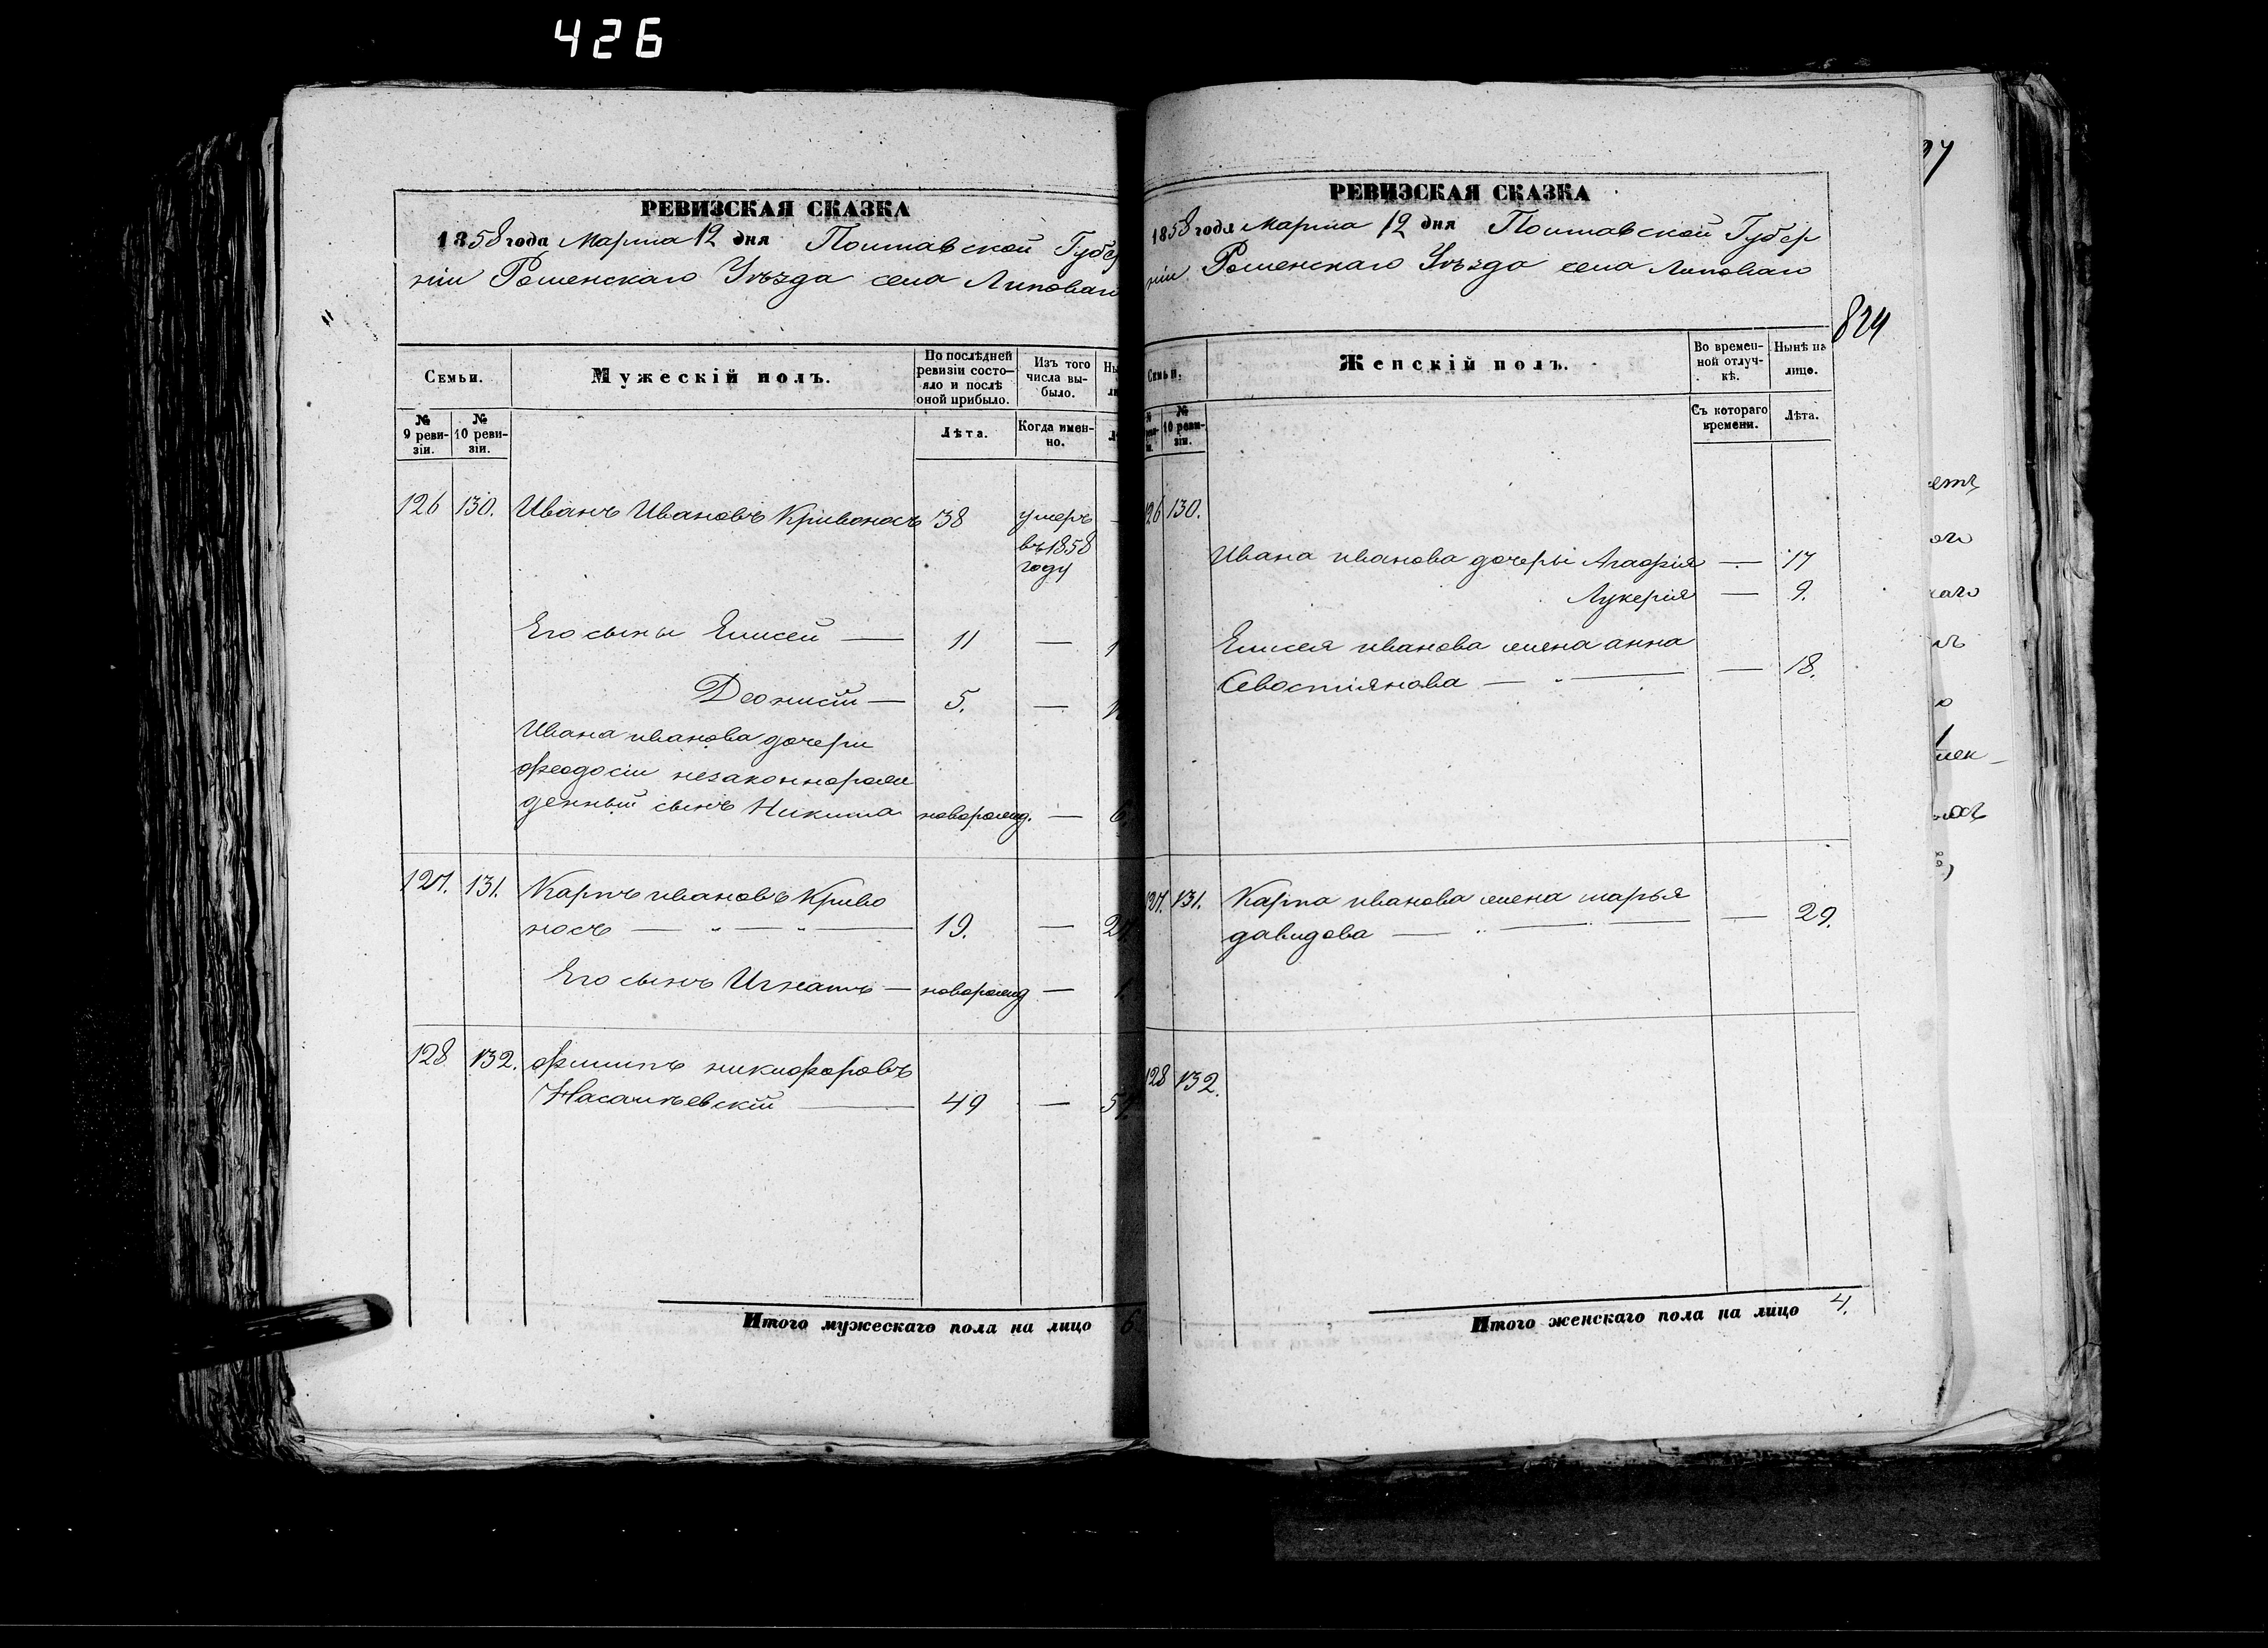 426
РЕВИЗСКАЯ СКАЗКА
1858 года Марта 12 дня Полтавской Губер
ніи Роменскаго Уѣзда села Липоваго
Семьи.
Мужескій полъ.
По послѣдней ревизіи состо-
яло и послѣ
оной прибыло.
Изъ того
числа вы-
было.
№
9 реви-
зіи.
№
10 реви-
зіи.
Лѣта.
Когда имен-
но.
126 130. Иванъ Ивановъ Кривоносъ 38 умеръ
въ 1858
году
Его сыны Елисей — 11 —
Деонисій — 5. —
Ивана иванова дочери
феодосіи незаконнорож
денный сынъ Никита новорожд. — 6.
127. 131. Карпъ ивановъ Криво
носъ — „ — „ — 19. —
Его сынъ Игнатъ — новорожд — 1.
128 132. филипъ никифоровъ
— 49 —
Итого мужескаго пола на лицо 6
РЕВИЗСКАЯ СКАЗКА
1858 года Марта 12 дня Полтавской Губер
ніи Роменскаго Уѣзда села Липоваго
824
Семьи.
Женскій полъ.
Во времен-
ной отлуч-
кѣ.
Нынѣ на
лицо.
№
10 реви-
зіи.
Съ котораго
времени.
Лѣта.
126 130.
Ивана иванова дочери Агафія — 17
Лукерія — 9.
Елисея иванова жена анна
Севостіянова — „ — — 18.
127. 131. Карпа иванова жена марья
давидова — „ — — 29.
128 132.
Итого женскаго пола на лицо 4.